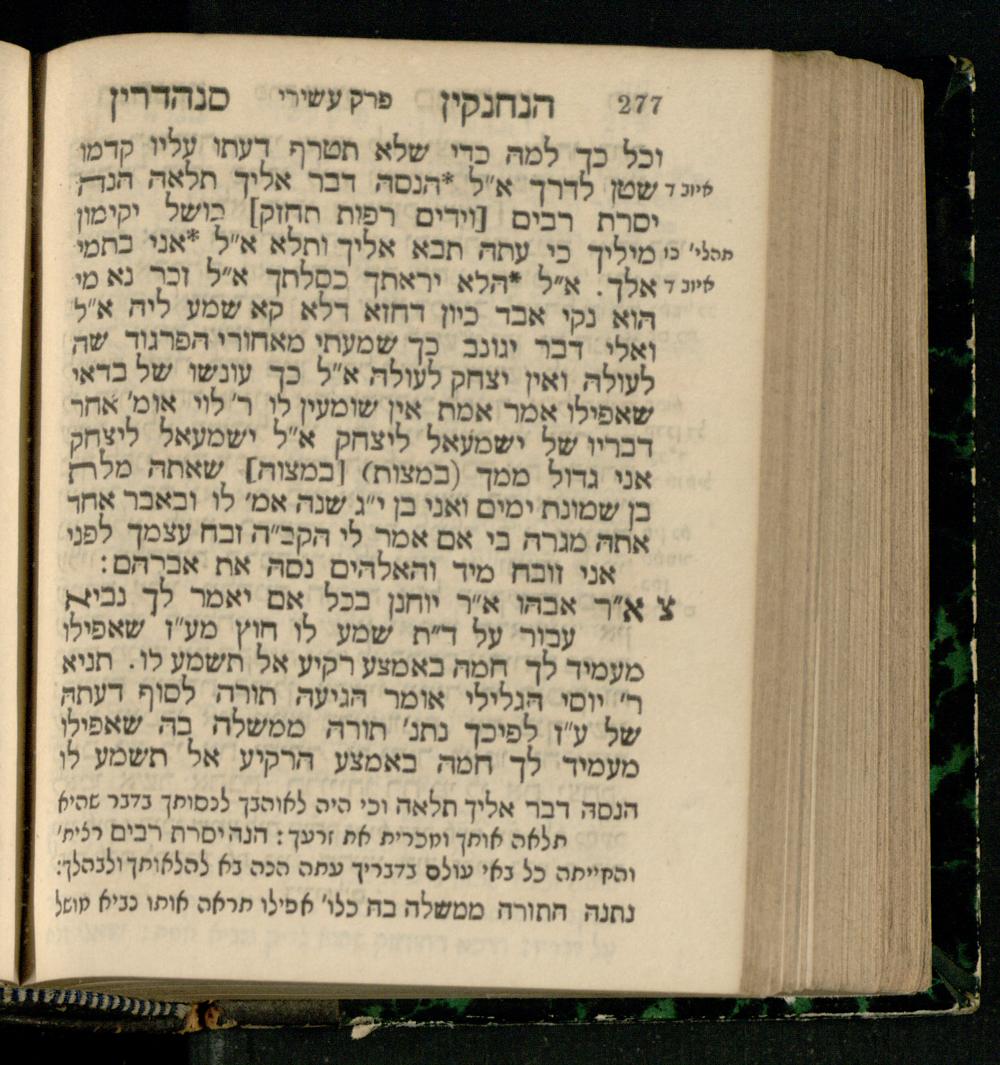 277 הנחנקין פרק עשירי סנהדרין
וכל כך למה כדי שלא תטרף דעתו עליו קדמו
איוב ד שטן לדרך א"ל *הנסה דבר אליך תלאה הנה
יסרת רבים [וידים רפות תחזק] כושל יקימון
תהלי' כו מיליך כי עתה תבא אליך ותלא א"ל *אני בתמי
איוב ד אלך. א"ל *הלא יראתך כסלתך א"ל זכר נא מי
הוא נקי אבד כיון דחזא דלא קא שמע ליה א"ל
ואלי דבר יגונב כך שמעתי מאחורי הפרגוד שה
לעולה ואין יצחק לעולה א"ל כך עונשו של בדאי
שאפילו אמר אמת אין שומעין לו ר' לוי אומ' אחר
דבריו של ישמעאל ליצחק א"ל ישמעאל ליצחק
אני גדול ממך (במצות) [במצוה] שאתה מלת
בן שמונת ימים ואני בן י"ג שנה אמ' לו ובאבר אחד
אתה מגרה בי אם אמר לי הקב"ה זבח עצמך לפני
אני זובח מיד והאלהים נסה את אברהם:
צ א"ר אבהו א"ר יוחנן בכל אם יאמר לך נביא
עבור על ד"ת שמע לו חוץ מע"ז שאפילו
מעמיד לך חמה באמצע רקיע אל תשמע לו. תניא
ר' יוסי הגלילי אומר הגיעה תורה לסוף דעתה
של ע"ז לפיכך נתנ' תורה ממשלה בה שאפילו
מעמיד לך חמה באמצע הרקיע אל תשמע לו
הנסה דבר אליך תלאה וכי היה לאוהבך לנסותך בדבר שהיא
תלאה אותך ומכרית את זרעך: הנה יסרת רבים רצית'
והחייתה כל באי עולם בדבריך עתה הנה בא להלאותך ולבהלך:
נתנה התורה ממשלה בה כלו' אפילו תראה אותו נביא מושל